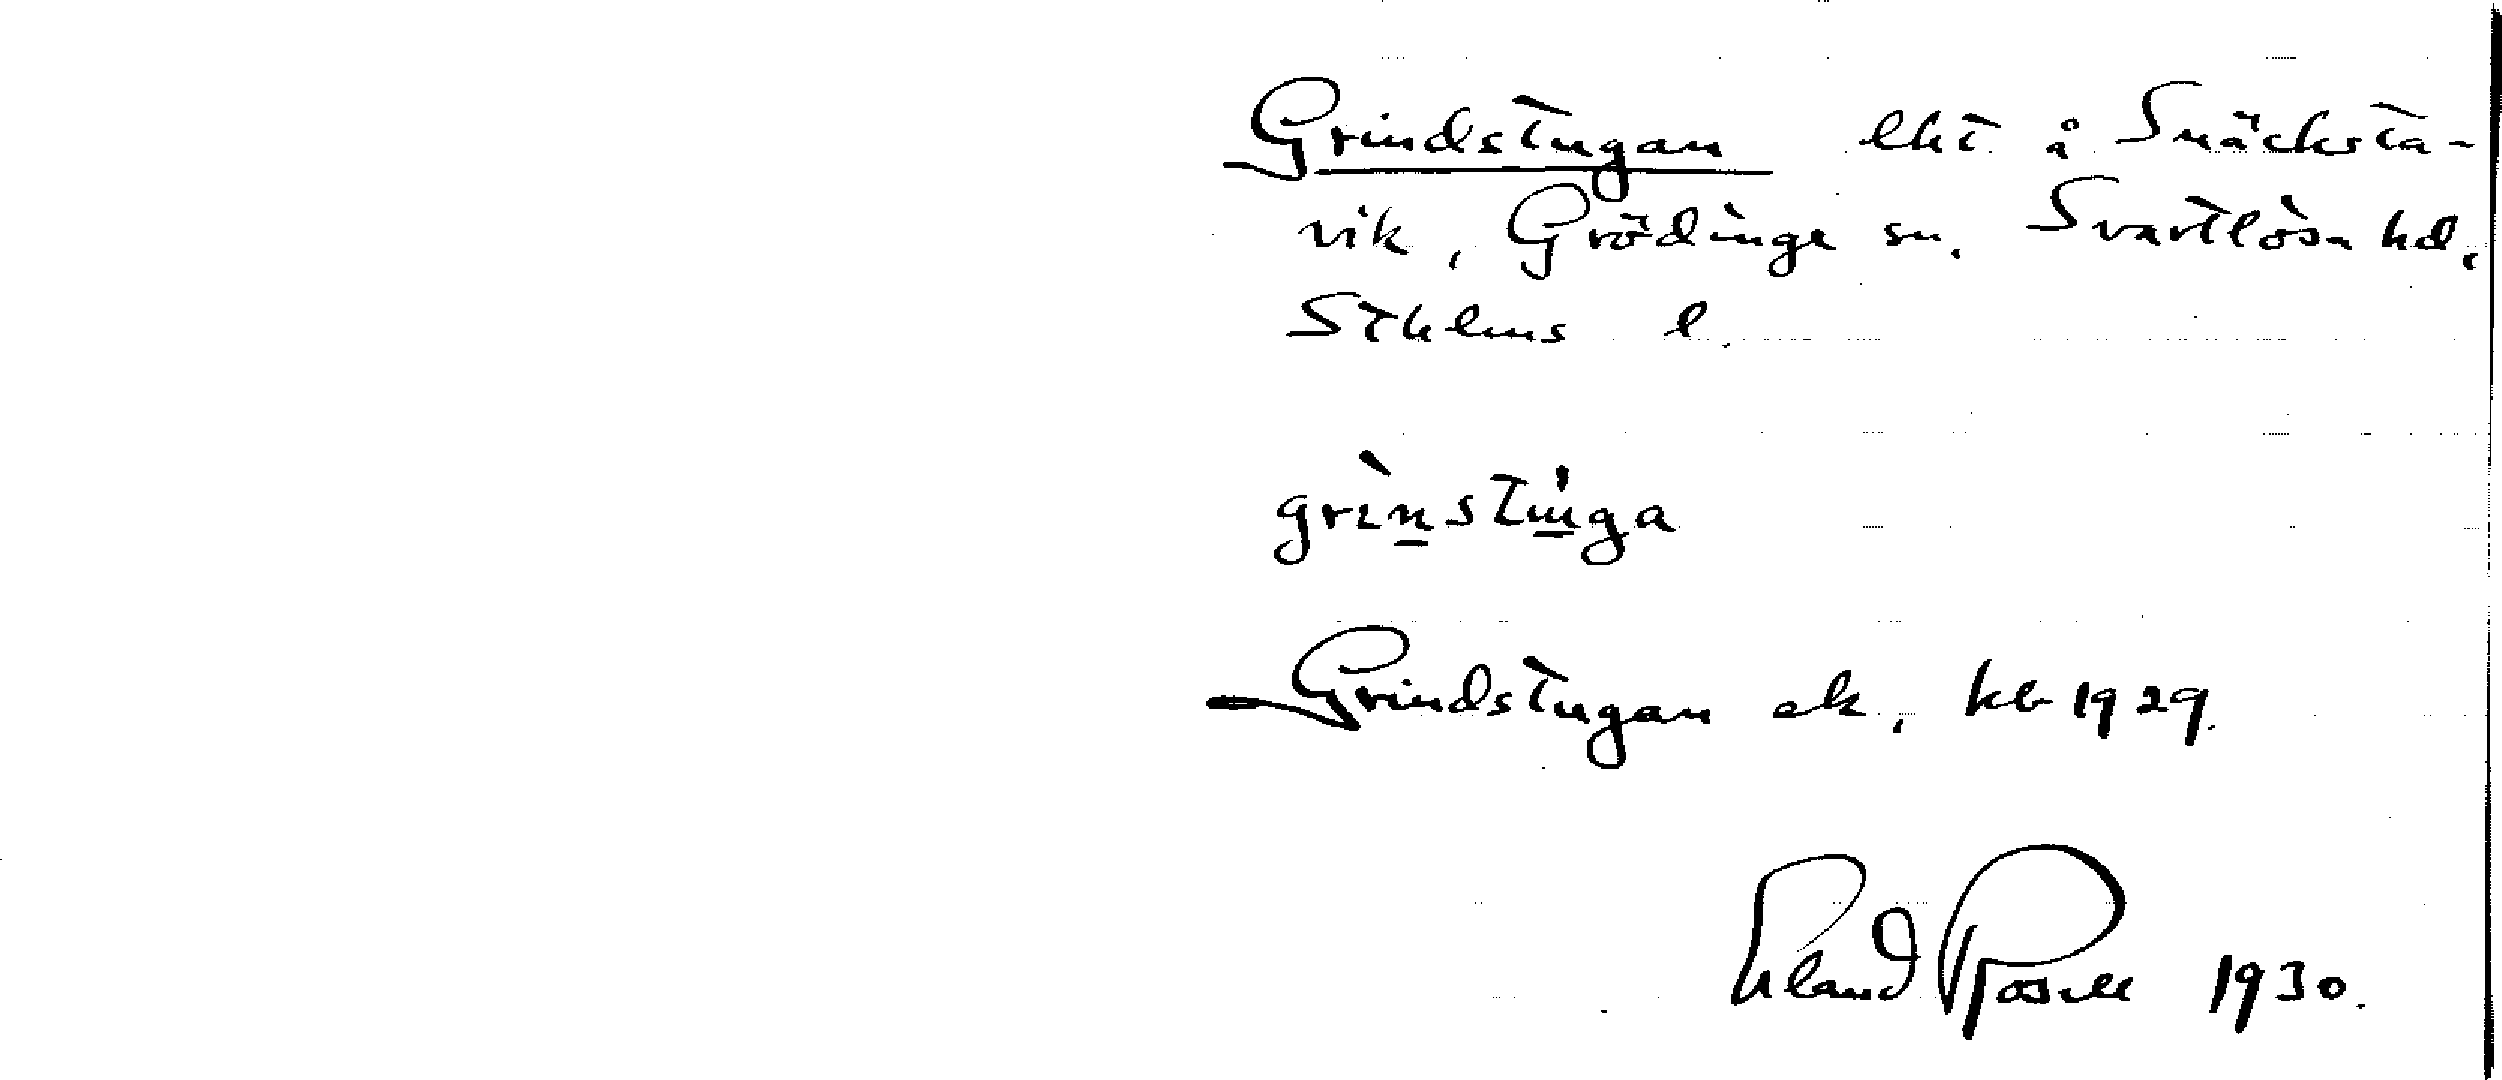 Grindstugan lht å Snäcksta-
vik, Grödinge sn. Svartlösa hd,
Sthlms l.
grìnstu̍ga
Grindstugan ek, kb 1929.
Erland Rosell 1930.